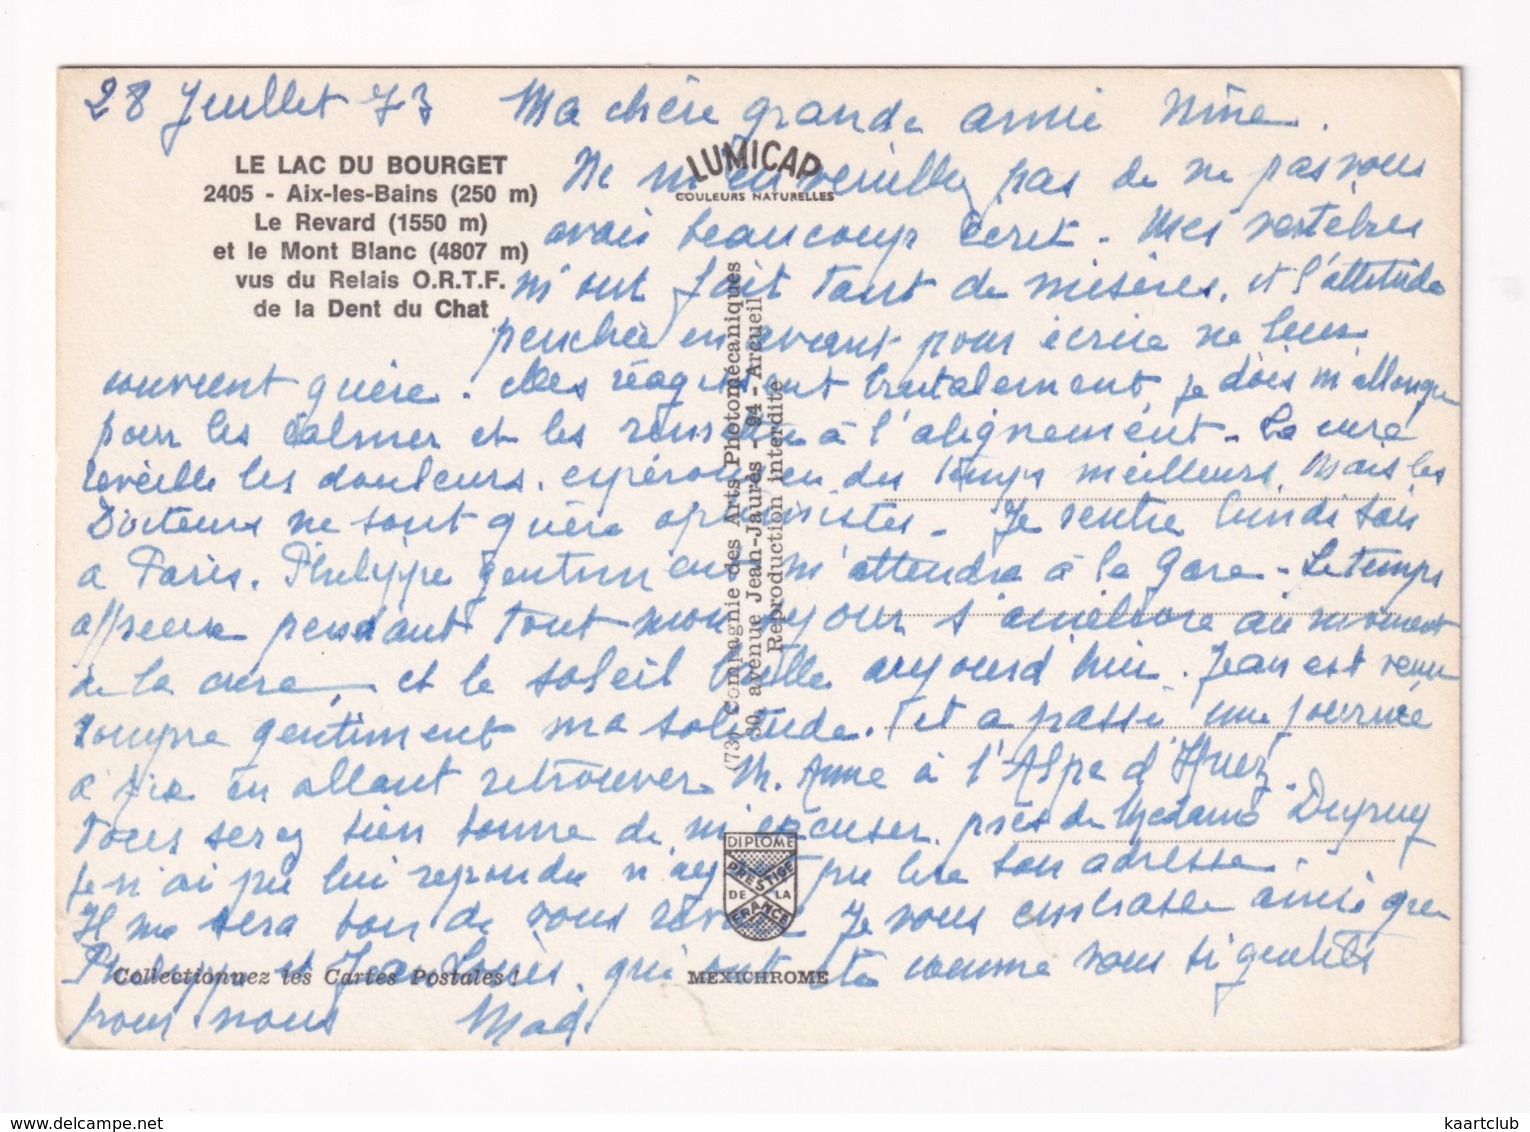 28 Juillet 73 Ma chère grande amie Nine.
LE LAC DU BOURGET
2405 - Aix-les-Bains (250 m)
Le Revard (1550 m)
et le Mont Blanc (4807 m)
vus du Relais O.R.T.F.
de la Dent du Chat
LUMICAP
COULEURS NATURELLES
Ne m'en veuillez pas de ne pas vous
avoir beaucoup écrit - Mes vertèbres
m'ont fait tant de misères, et l'attitude
penchée en avant pour écrire ne leur
convient guère. Elles réagissent brutalement, je dois m'allonger
pour les calmer et les remettre à l'alignement - La cure
réveille les douleurs. espérons en des temps meilleurs. Mais les
Docteurs ne sont guère optimistes - Je rentre lundi soir
à Paris. Philippe gentiment m'attendra à la gare - Le temps
affreux pendant tout mon séjour s'améliore au moment
de la cure, et le soleil brille aujourd'hui. Jean est venu
rompre gentiment ma solitude. et a passé une journée
à Aix en allant retrouver M. Anne à l'Alpe d'Huez.
Vous serez bien bonne de m'excuser près de Madame Dupuy
je n'ai pu lui répondre n'ayant pu lire son adresse.
Il me sera bon de vous revoir Je vous embrasse ainsi que
Philippe et Jean Louis, qui ont été comme vous si gentils
pour nous Mad.
(73) Compagnie des Arts Photomécaniques
30, avenue Jean-Jaurès - 94 - Arcueil
Reproduction interdite
DIPLOME
PRESTIGE
DE LA
FRANCE
Collectionnez les Cartes Postales !
MEXICHROME
delcampe.net
kaartclub